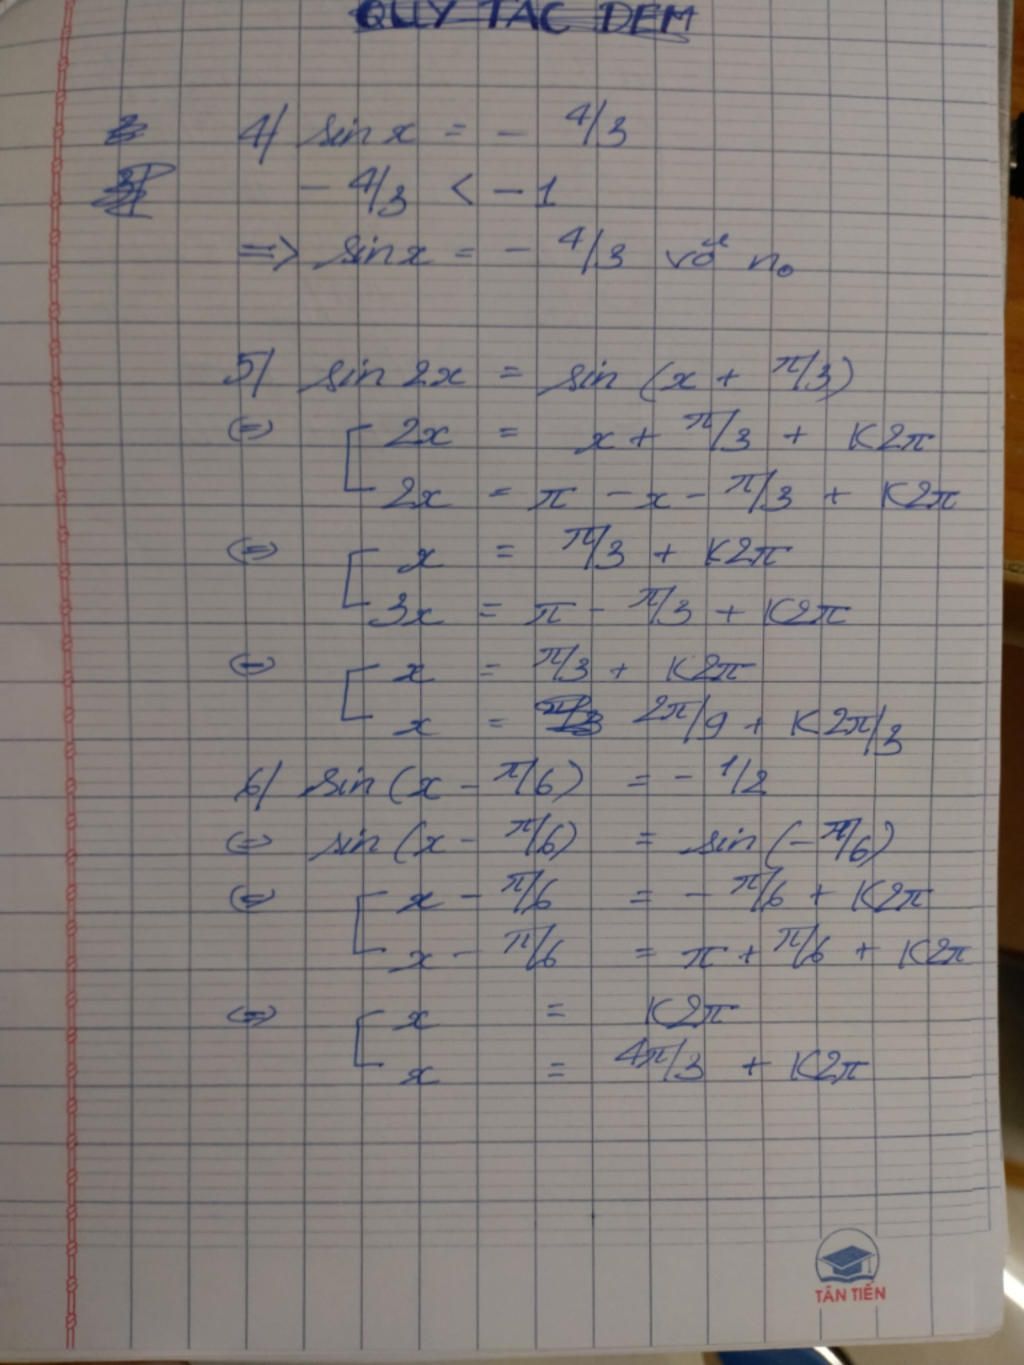 QUY TẮC ĐẾM
4/ sin x = - 4/3
- 4/3 < - 1
=> sin x = - 4/3 vô n.
5/ sin 2x = sin (x + π/3)
<=> [ 2x = x + π/3 + K2π
2x = π - x - π/3 + K2π
<=> [ x = π/3 + K2π
3x = π - π/3 + K2π
<=> [ x = π/3 + K2π
x = 2π/9 + K2π/3
6/ sin (x - π/6) = - 1/2
<=> sin (x - π/6) = sin (- π/6)
<=> [ x - π/6 = - π/6 + K2π
x - π/6 = π + π/6 + K2π
<=> [ x = K2π
x = 4π/3 + K2π
TÂN TIẾN